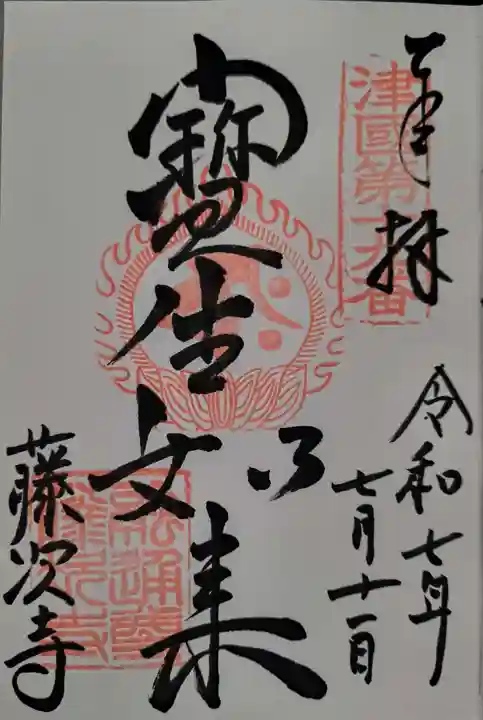 奉拝
津國第十九番
令和七年
七月十一日
寶生如来
藤次寺